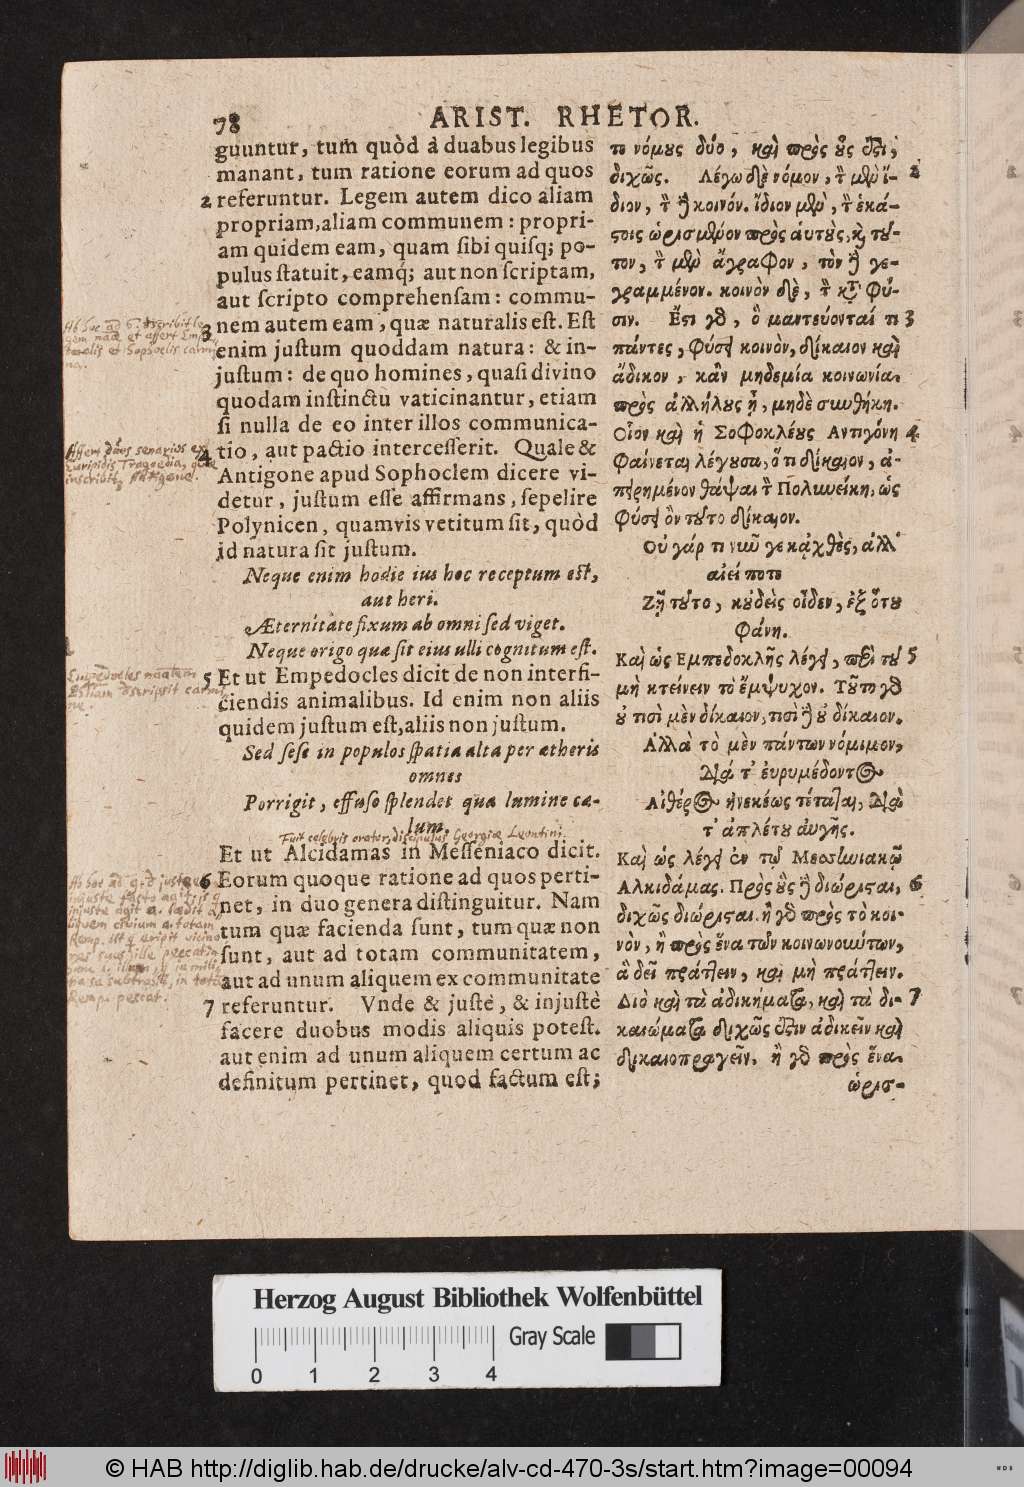 78
ARIST. RHETOR.
guuntur, tum quòd à duabus legibus
manant, tum ratione eorum ad quos
2 referuntur. Legem autem dico aliam
propriam, aliam communem: propri-
am quidem eam, quam sibi quisq; po-
pulus statuit, eamq́; aut non scriptam,
aut scripto comprehensam: commu-
3 nem autem eam, quæ naturalis est. Est
enim justum quoddam natura: & in-
justum: de quo homines, quasi divino
quodam instinctu vaticinantur, etiam
si nulla de eo inter illos communica-
4 tio, aut pactio intercesserit. Quale &
Antigone apud Sophoclem dicere vi-
detur, justum esse affirmans, sepelire
Polynicen, quamvis vetitum sit, quòd
id natura sit justum.
Neque enim hodie ius hoc receptum est,
aut heri.
Æternitate fixum ab omni sed viget.
Neque origo quæ sit eius ulli cognitum est.
5 Et ut Empedocles dicit de non interfi-
ciendis animalibus. Id enim non aliis
quidem justum est, aliis non justum.
Sed sese in populos spatia alta per ætheris
omnes
Porrigit, effuso splendet qua lumine cæ-
lum.
Fuit celebris orator, discipulus Georgiæ Leontini.
Et ut Alcidamas in Messeniaco dicit.
6 Eorum quoque ratione ad quos perti-
net, in duo genera distinguitur. Nam
tum quæ facienda sunt, tum quæ non
sunt, aut ad totam communitatem,
aut ad unum aliquem ex communitate
7 referuntur. Vnde & justè, & injustè
facere duobus modis aliquis potest.
aut enim ad unum aliquem certum ac
definitum pertinet, quod factum est;
τι νόμους δύο, καὶ πρὸς οὕς ἐστι,
διχῶς. Λέγω δὲ νόμον, τὸν μὲν ἴ- 2
διον, τὸν δὲ κοινόν. ἴδιον μὲν, τὸν ἑκά-
στοις ὡρισμένον πρὸς αὑτοὺς, καὶ τοῦ-
τον, τὸν μὲν ἄγραφον, τὸν δὲ γε-
γραμμένον. κοινὸν δὲ, τὸν κατὰ φύ-
σιν. Ἔστι γὰρ, ὃ μαντεύονταί τι 3
πάντες, φύσει κοινὸν, δίκαιον καὶ
ἄδικον, κἂν μηδεμία κοινωνία
πρὸς ἀλλήλους ᾖ, μηδὲ συνθήκη.
Οἷον καὶ ἡ Σοφοκλέους Αντιγόνη 4
φαίνεται λέγουσα, ὅτι δίκαιον, ἀ-
πειρημένον θάψαι τὸν Πολυνείκη, ὡς
φύσει ὂν τοῦτο δίκαιον.
Οὐ γάρ τι νῦν γε κᾀχθὲς, ἀλλ'
αἰεί ποτε
Ζῇ τοῦτο, κοὐδεὶς οἶδεν, ἐξ ὅτου
φάνη.
Καὶ ὡς Εμπεδοκλῆς λέγει, περὶ τοῦ 5
μὴ κτείνειν τὸ ἔμψυχον. Τοῦτο γὰρ
οὐ τισὶ μὲν δίκαιον, τισὶ δὲ οὐ δίκαιον.
Ἀλλὰ τὸ μὲν πάντων νόμιμον,
διά τ' εὐρυμέδοντος
Αἰθέρος ἠνεκέως τέταται, διὰ
τ' ἀπλέτου αὐγῆς.
Καὶ ὡς λέγει ἐν τῷ Μεσσηνιακῷ
Αλκιδάμας. Πρὸς οὓς δὲ διώρισται, 6
διχῶς διώρισται. ἢ γὰρ πρὸς τὸ κοι-
νὸν, ἢ πρὸς ἕνα τῶν κοινωνούντων,
ἃ δεῖ πράττειν, καὶ μὴ πράττειν.
Διὸ καὶ τὰ ἀδικήματα, καὶ τὰ δι- 7
καιώματα διχῶς ἐστιν ἀδικεῖν καὶ
δικαιοπραγεῖν. ἢ γὰρ πρὸς ἕνα
ὡρισ-
Herzog August Bibliothek Wolfenbüttel
Gray Scale
0 1 2 3 4
© HAB http://diglib.hab.de/drucke/alv-cd-470-3s/start.htm?image=00094